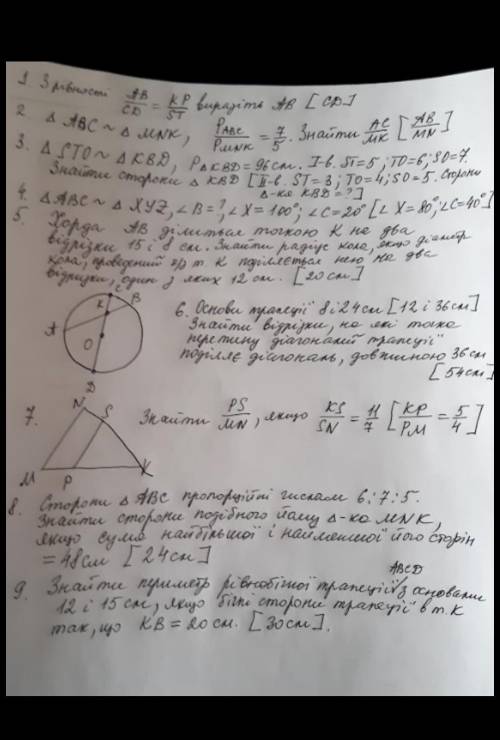 1. З рівності AB/CD = KP/ST виразіть AB [CD]
2. Δ ABC ~ Δ MNK, P_ABC/P_MNK = 7/5. Знайти AC/MK [AB/MN]
3. Δ STO ~ Δ KBD, P_ΔKBD = 96см. I-в. ST=5; TO=6; SO=7.
Знайти сторони Δ KBD [II-в. ST=3; TO=4; SO=5. Сторони
Δ-ка KBD = ?]
4. Δ ABC ~ Δ XYZ, ∠B=?, ∠X=100°; ∠C=20° [∠X=80°, ∠C=40°]
5. Хорда AB ділиться точкою K на два
відрізки 15 і 8 см. Знайти радіус кола, якщо діаметр
кола, проведений ч/з т. K поділяється нею на два
відрізки, один з яких 12 см. [20см]
C
K
B
A
O
D
6. Основи трапеції 8 і 24см [12 і 36см]
Знайти відрізки, на які точка
перетину діагоналей трапеції
поділяє діагональ, довжиною 36см
[54см]
7.
N
S
M
P
K
Знайти PS/MN, якщо KS/SN = 11/7 [KP/PM = 5/4]
8. Сторони Δ ABC пропорційні числам 6:7:5.
Знайти сторони подібного йому Δ-ка MNK,
якщо сума найбільшої і найменшої його сторін
= 48см [24см]
ABCD
9. Знайти периметр рівнобічної трапеції з основами
12 і 15см, якщо бічні сторони трапеції в т. K
так, що KB = 20см. [30см].